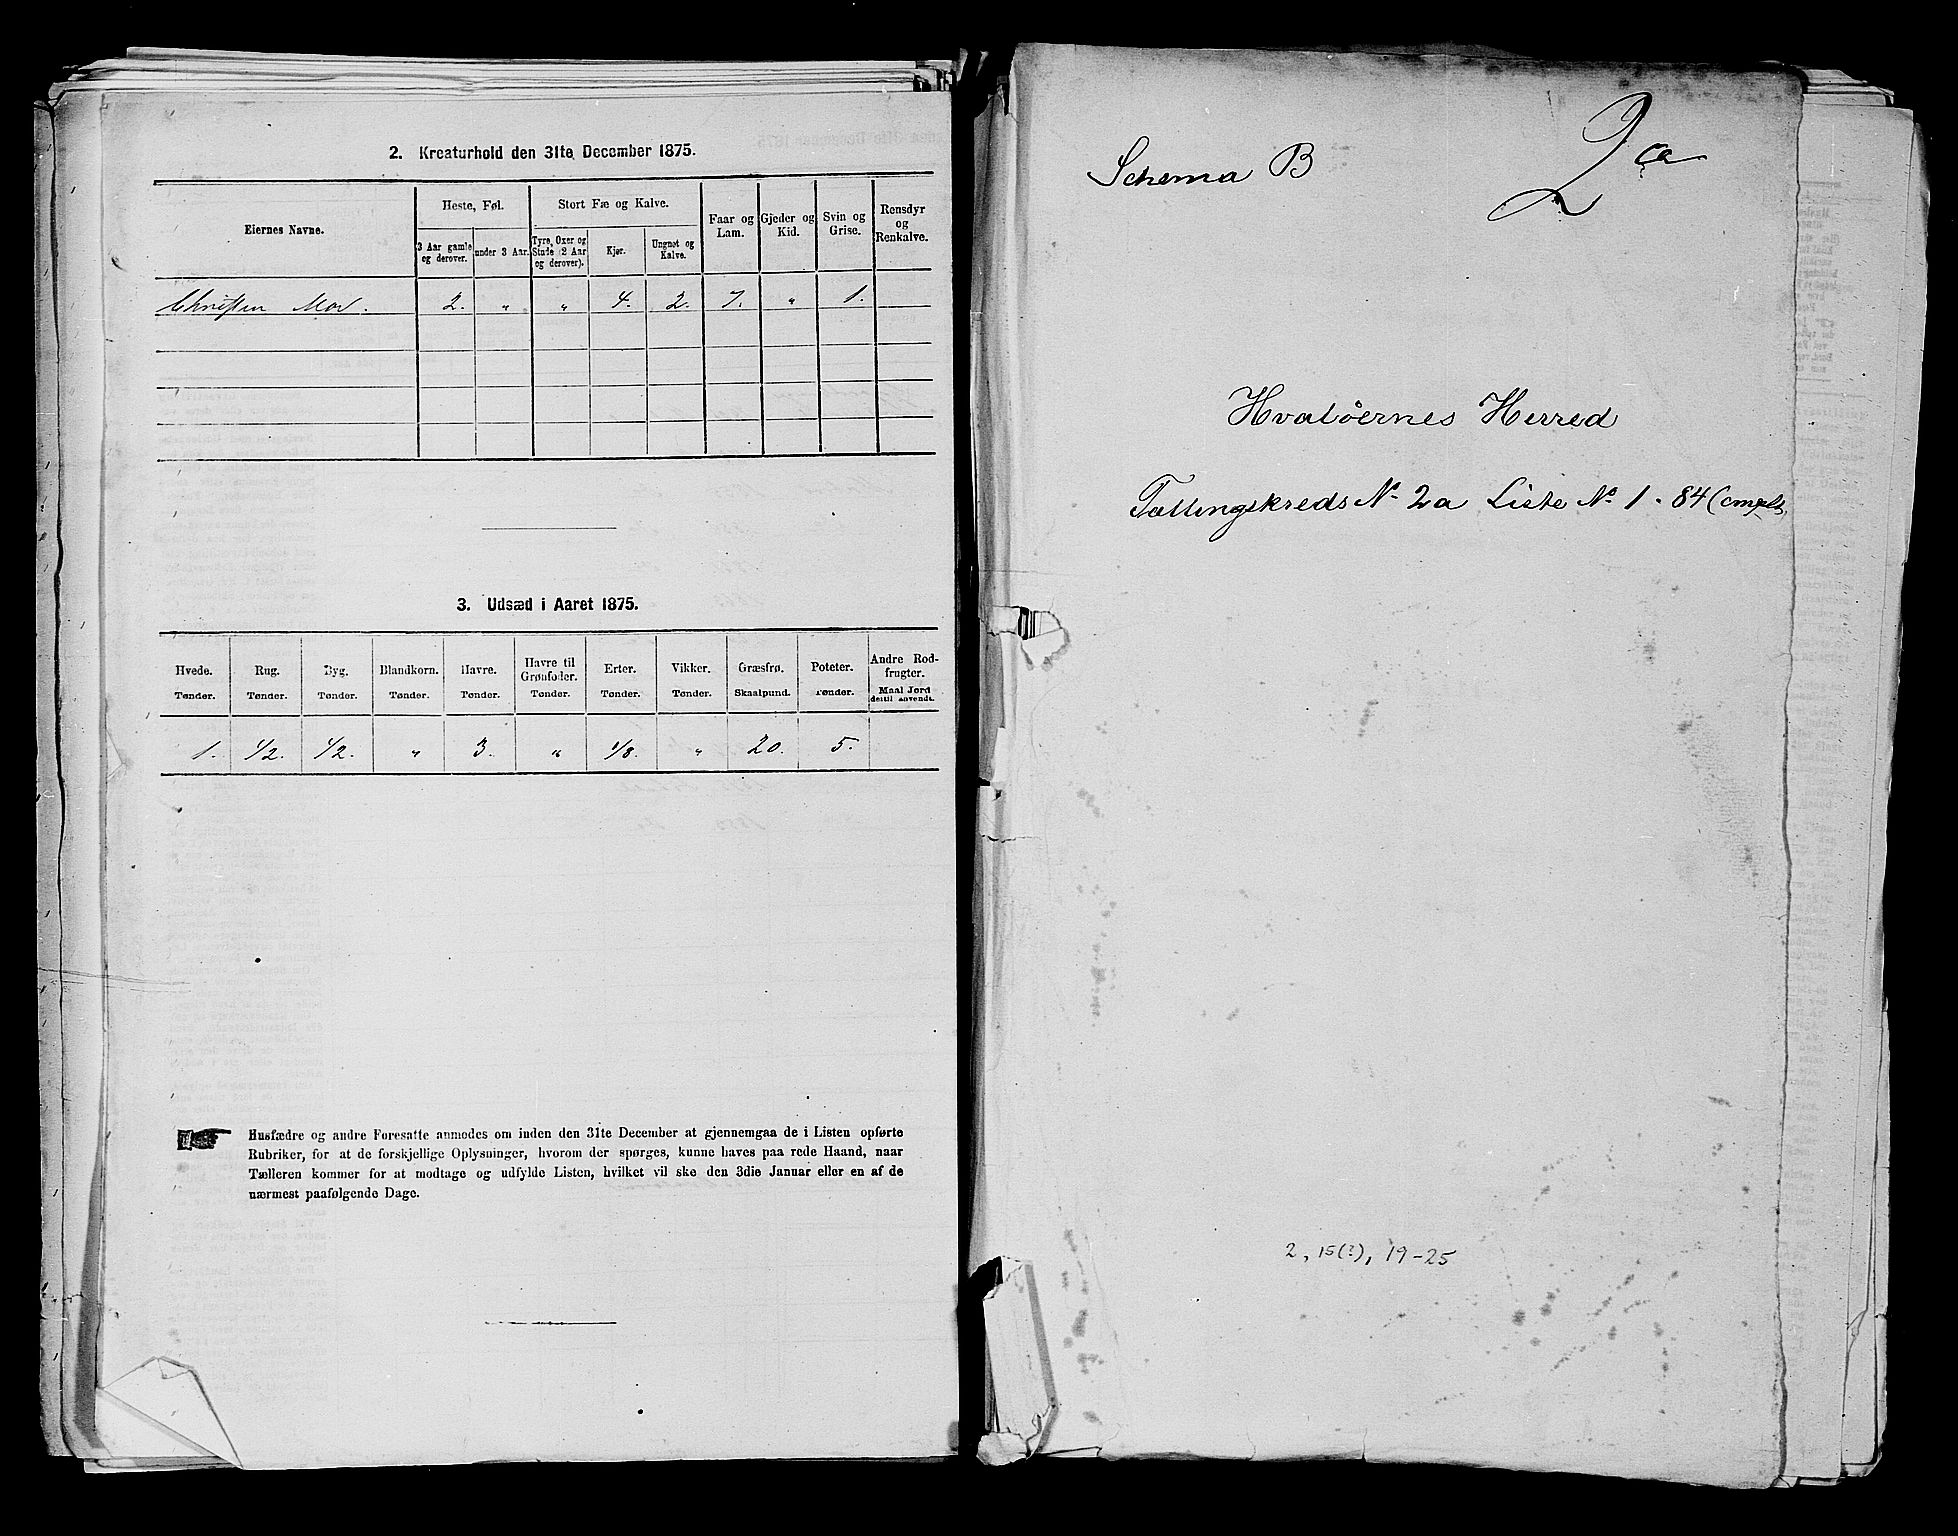 2. Kreaturhold den 31te December 1875.
Eiernes Navne.
Heste, Føl.
3 Aar gamle og derover.
under 3 Aar.
Stort Fæ og Kalve.
Tyre, Oxer og Stude (2 Aar og derover).
Kjør.
Ungnøt og Kalve.
Faar og Lam.
Gjeder og Kid.
Svin og Grise.
Rensdyr og Renkalve.
Christen 2. " " 4. 2. 7. " 1.
3. Udsæd i Aaret 1875.
Hvede. Rug. Byg. Blandkorn. Havre. Havre til Grønfoder. Erter. Vikker. Græsfrø. Poteter. Andre Rodfrugter.
Tønder. Tønder. Tønder. Tønder. Tønder. Tønder. Tønder. Tønder. Skaalpund. Tønder. Maal Jord dertil anvendt.
1. 1/2. 1/2. " 3. " 1/8. " 20. 5.
Husfædre og andre Foresatte anmodes om inden den 31te December at gjennemgaa de i Listen opførte
Rubriker, for at de forskjellige Oplysninger, hvorom der spørges, kunne haves paa rede Haand, naar
Tælleren kommer for at modtage og udfylde Listen, hvilket vil ske den 3die Januar eller en af de
nærmest paafølgende Dage.
Schema B
2a
Hvaløernes Herred
Tællingskreds No 2a Liste No 1 - 84 (complt.
2, 15(?), 19-25